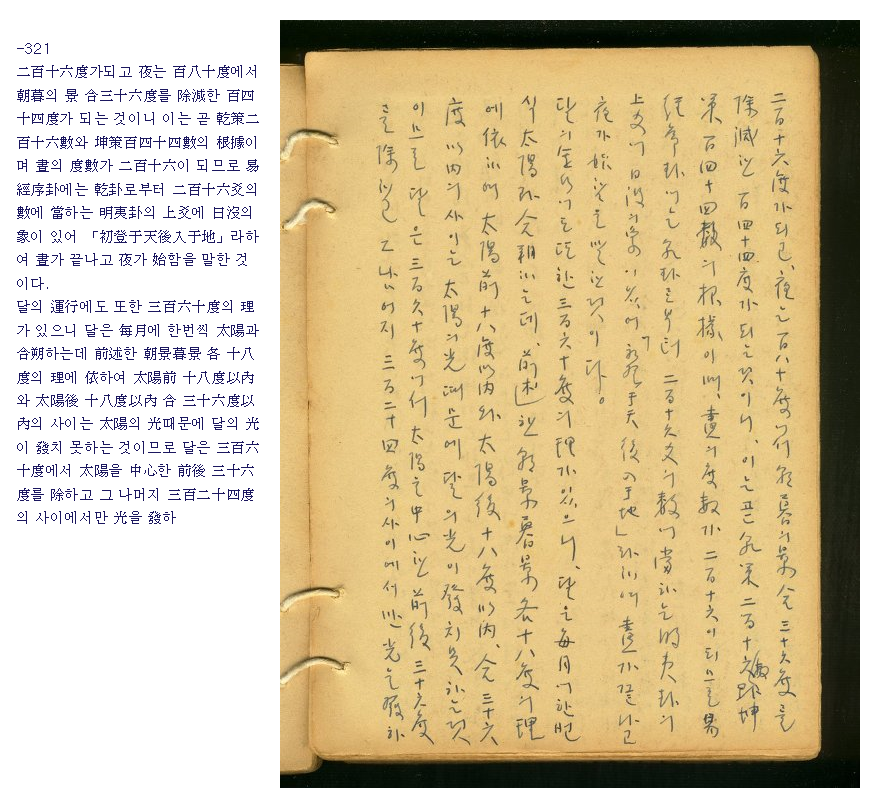 -321
二百十六度가되고 夜는 百八十度에서
朝暮의 景 合三十六度를 除減한 百四
十四度가 되는 것이니 이는 곧 乾策二
百十六數와 坤策百四十四數의 根據이
며 晝의 度數가 二百十六이 되므로 易
經序卦에는 乾卦로부터 二百十六爻의
數에 當하는 明夷卦의 上爻에 日沒의
象이 있어 「初登于天後入于地」라하
여 晝가 끝나고 夜가 始함을 말한 것
이다.
달의 運行에도 또한 三百六十度의 理
가 있으니 달은 每月에 한번씩 太陽과
合朔하는데 前述한 朝景暮景 各 十八
度의 理에 依하여 太陽前 十八度以內
와 太陽後 十八度以內 合 三十六度以
內의 사이는 太陽의 光때문에 달의 光
이 發치 못하는 것이므로 달은 三百六
十度에서 太陽을 中心한 前後 三十六
度를 除하고 그 나머지 三百二十四度
의 사이에서만 光을 發하
二百十六度가되고, 夜는 百八十度에서 朝暮의景 合 三十六度를
除減한 百四十四度가 되는것이니, 이는곧 乾策 二百十六數와 坤
策 百四十四數의 根據이며, 晝의度數가 二百十六이되므로 易
經序卦에는 乾卦로부터 二百十六爻의 數에 當하는 明夷卦의
上爻에 日沒의象이있어 「初登于天後入于地」라하여 晝가끝나고
夜가 始함을 말한것이다。
달의運行에도 또한 三百六十度의理가 있으니, 달은 每月에한번
식 太陽과 合朔하는데, 前述한 朝景暮景 各十八度의理
에依하여 太陽前 十八度以內와 太陽後 十八度以內, 合 三十六
度以內의사이는 太陽의光때문에 달의光이 發치못하는것
이므로 달은 三百六十度에서 太陽을中心한 前後 三十六度
를 除하고 그 나머지 三百二十四度의사이에서만 光을發하